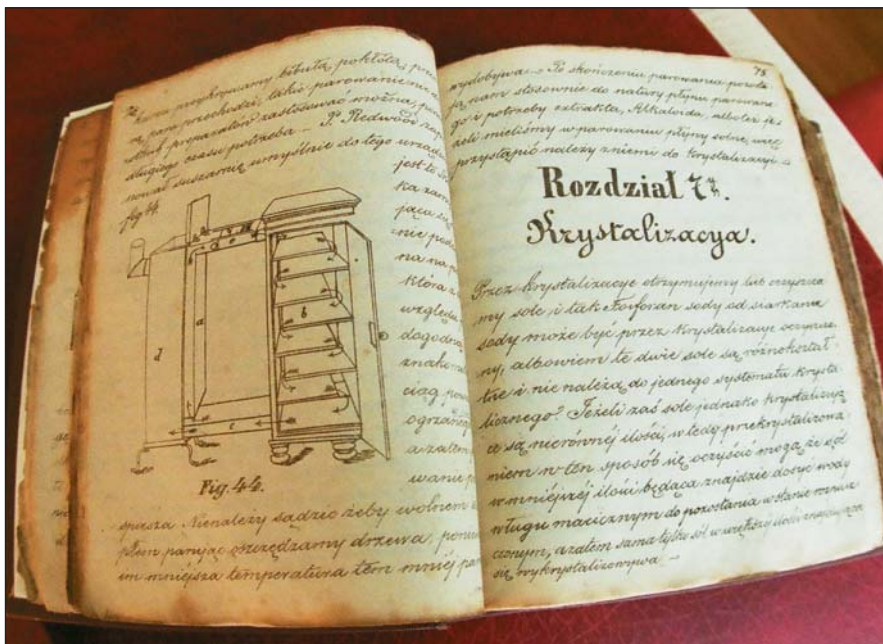 która przykrywamy bibułą, pokłóta, prze
rą para przechodzi, takie parowanie
preparatów zastosować można,
długiego czasu potrzeba — P. Redwood zapro
nował suszarnię umyślnie do tego urządz
fig 44.
jest to
ka zam
jąca się
nie pod
na na
która z
względu
dogodn
znako
ciąg
ogrzane
a zatem
wanie
a
b
c
d
Fig. 44.
spasza. Nienależy sądzić żeby wolnem
płem parując oszczędzamy drzewa, poniew
im mniejsza temperatura tem mniej par
75
wydobywa — Po skończeniu parowania pozosta
ją nam stosownie do natury płynu parowane
go i potrzeby extrakta, Alkaloida, albo też je
żeli mieliśmy w parowaniu płyny solne, więc
przystąpić należy z niemi do krystalizacyi —
Rozdział 7.
Krystalizacya.
Przez krystalizacye otrzymujemy lub oczyszcza
my sole, i tak Fosforan sody od siarkanu
sody może być przez krystalizacye oczyszczo
ny, albowiem te dwie sole są różnokształ
tne i nie należą do jednego systematu krysta
licznego? Jeżeli zaś sole jednako krystalizują
ce są nierównéj ilości, wtedy przekrystalizowa
niem w ten sposób się oczyścić mogą, że sól
w mniejszéj ilości będąca znajdzie dosyć wody
w ługu macicznym do pozostania w stanie rozpusz
czonym, a zatem sama tylko sól w większéj ilości
się wykrystalizowywa —